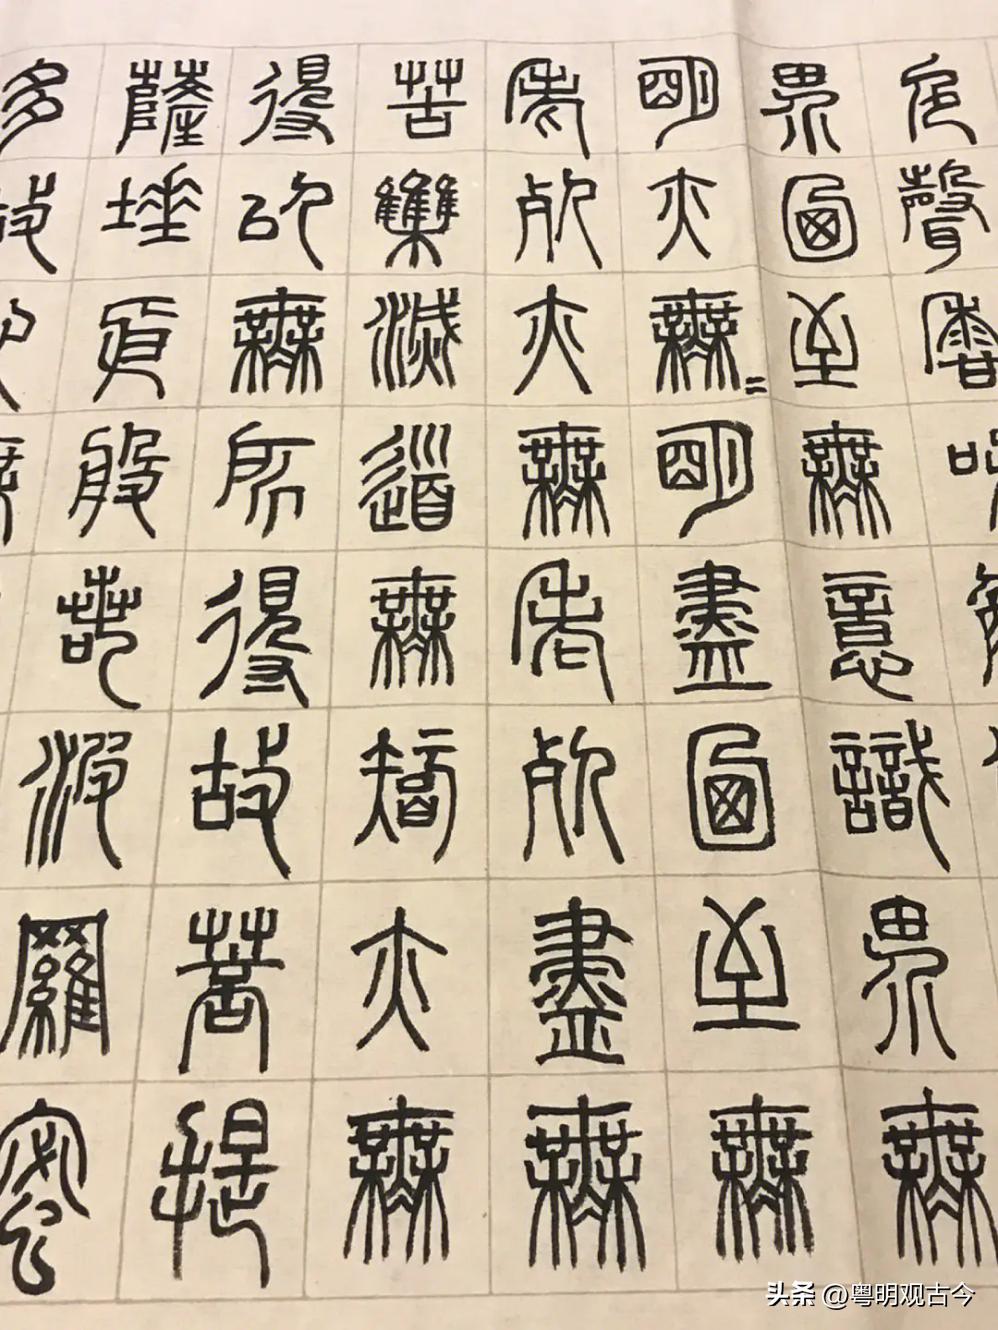 色聲香味觸
界乃至無意識界無
明亦無〻明盡乃至無
老死亦無老死盡無
苦集滅道無智亦無
得以無所得故菩提
薩埵依般若波羅蜜
多故心無
头条 @粤明观古今